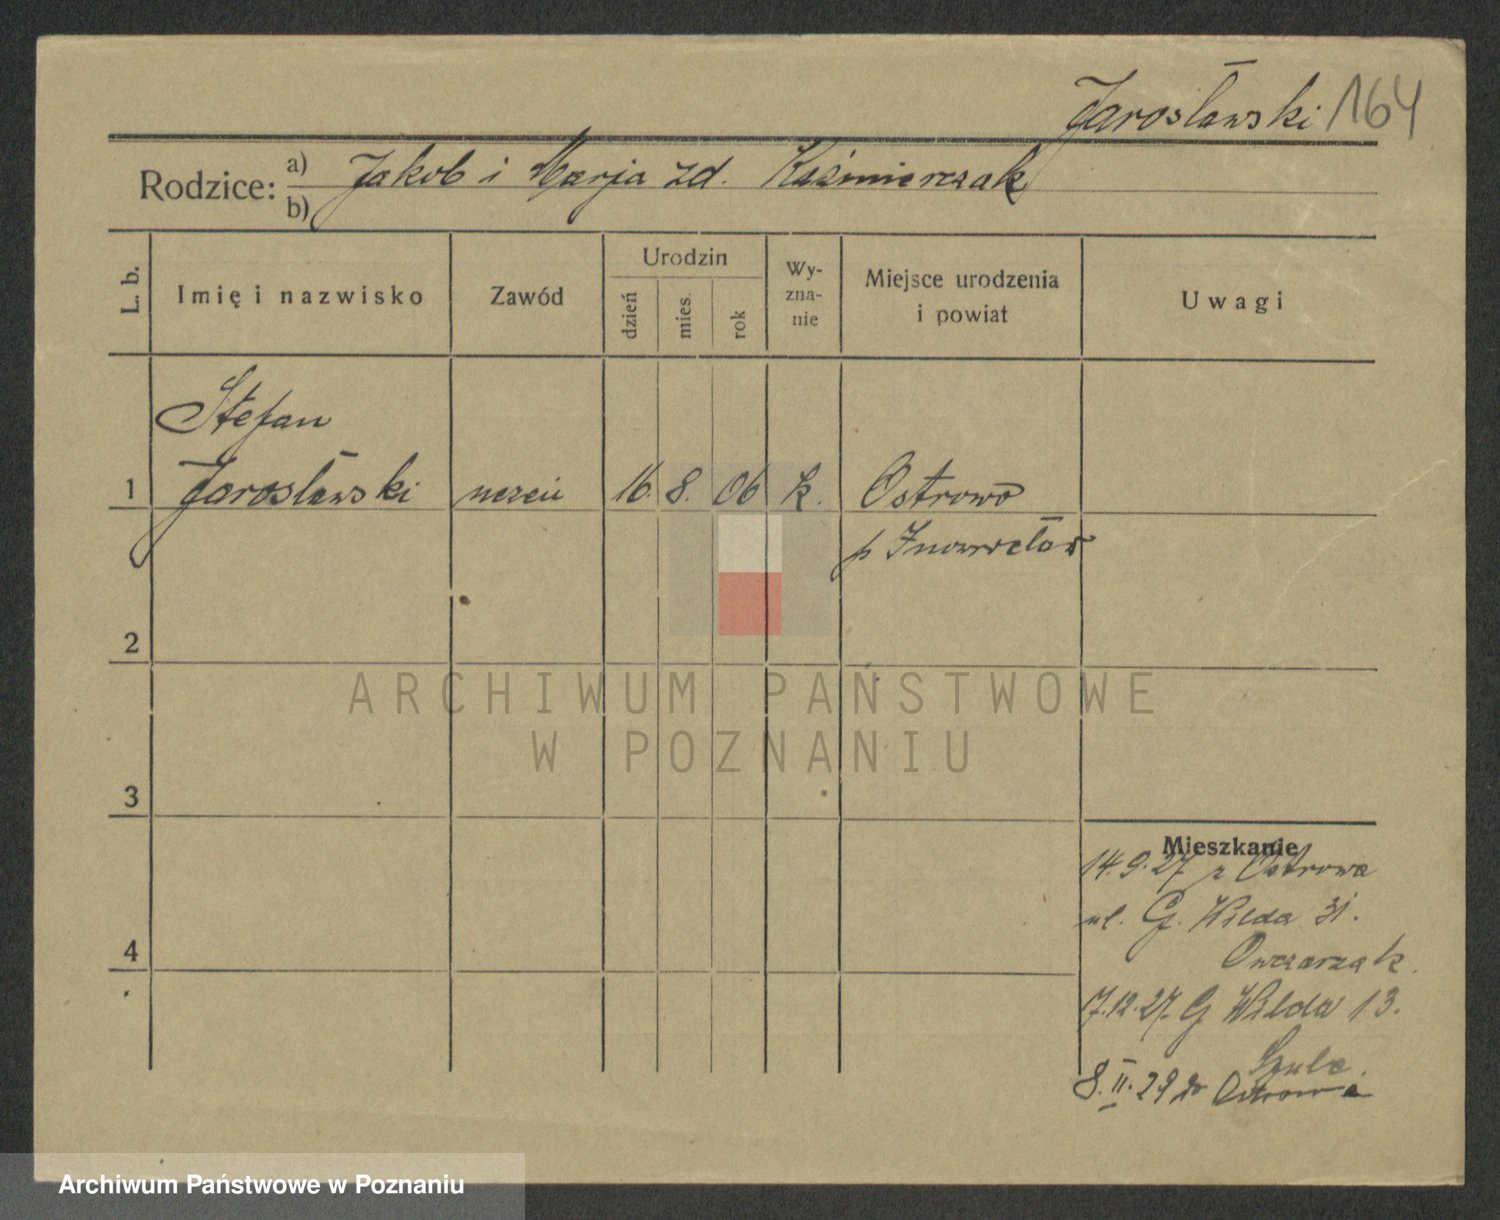 Jarosławski 164
Rodzice: a) Jakob i Marja zd. Kaźmierczak
b)
L. b. Imię i nazwisko Zawód Urodzin dzień mies. rok Wy-zna-nie Miejsce urodzenia i powiat Uwagi
Stefan
1 Jarosławski uczeń 16. 8. 06 k. Ostrowo
p Inowrocław
2
ARCHIWUM PAŃSTWOWE
W POZNANIU
3
Mieszkanie
14.9.27 z Ostrowa
ul. G. Wilda 31.
4
Owczarzak.
17.12.27. G Wilda 13.
Szulc.
8.II.29 do Ostrowa
Archiwum Państwowe w Poznaniu